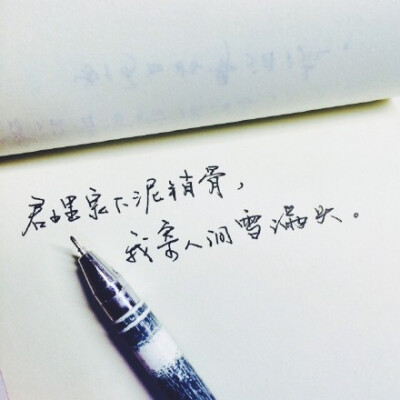 君埋泉下泥销骨，
我寄人间雪满头。